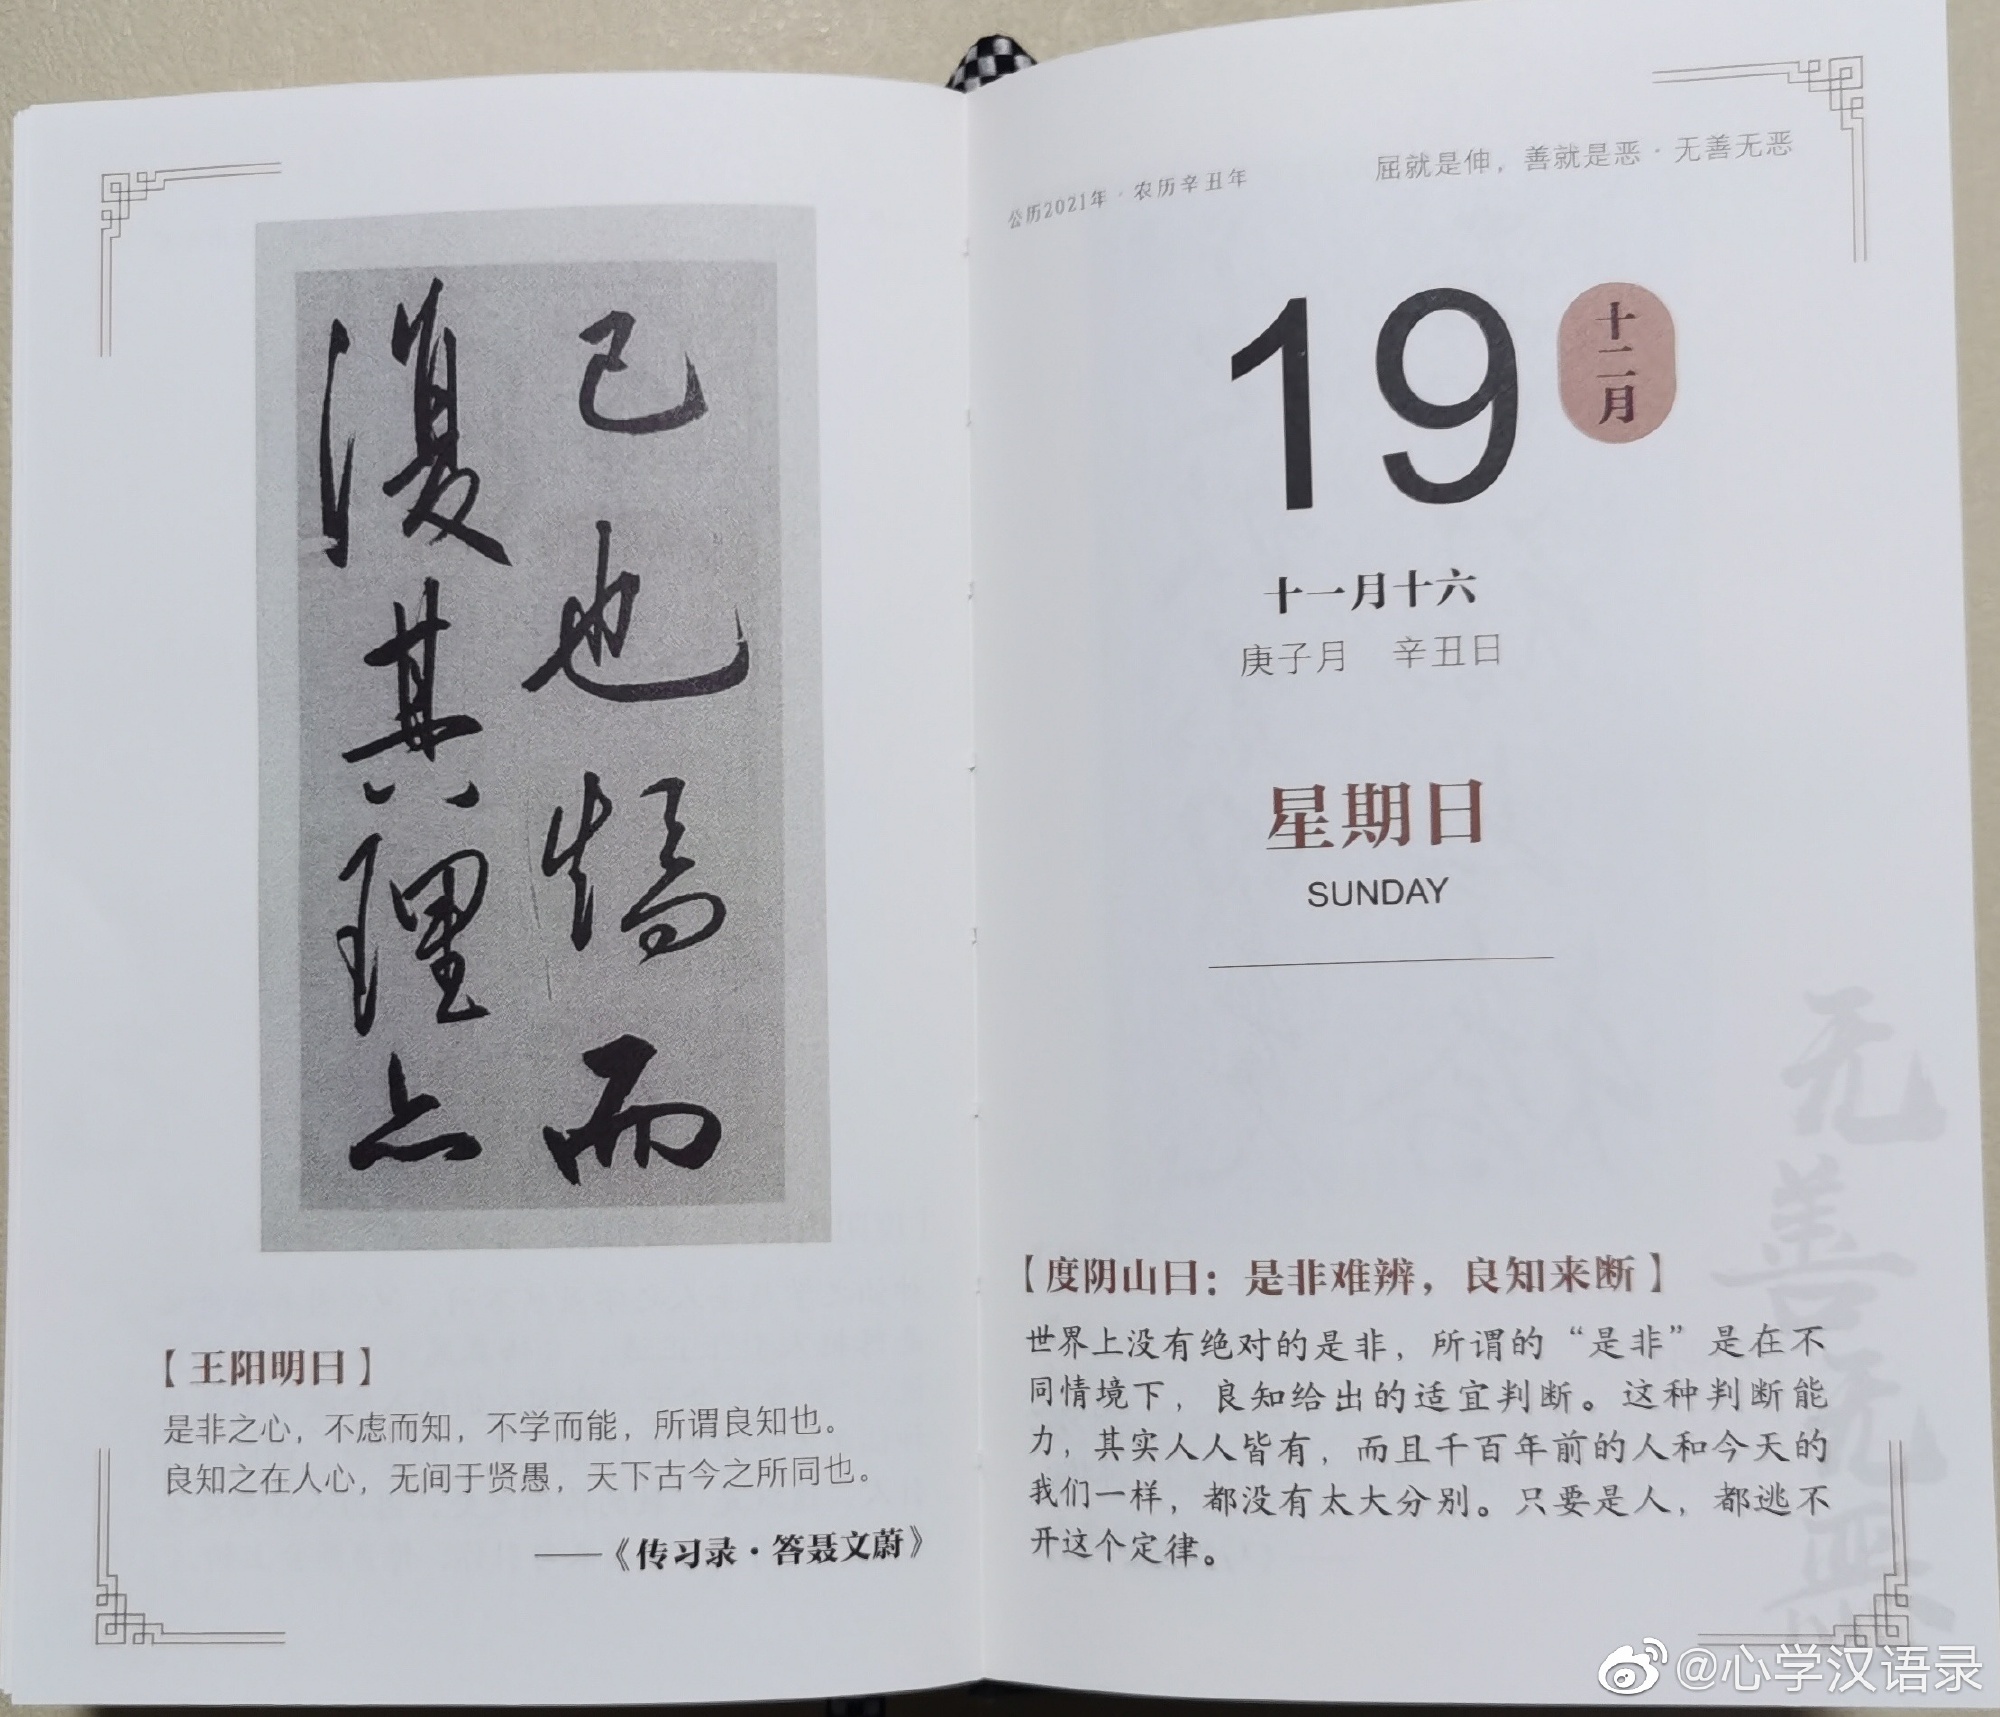 已也矯而
復其理亦
【王阳明曰】
是非之心，不虑而知，不学而能，所谓良知也。
良知之在人心，无间于贤愚，天下古今之所同也。
——《传习录·答聂文蔚》
公历2021年·农历辛丑年
屈就是伸，善就是恶·无善无恶
19
十二月
十一月十六
庚子月 辛丑日
星期日
SUNDAY
【度阴山曰：是非难辨，良知来断】
世界上没有绝对的是非，所谓的“是非”是在不
同情境下，良知给出的适宜判断。这种判断能
力，其实人人皆有，而且千百年前的人和今天的
我们一样，都没有太大分别。只要是人，都逃不
开这个定律。
无善无恶
@心学汉语录